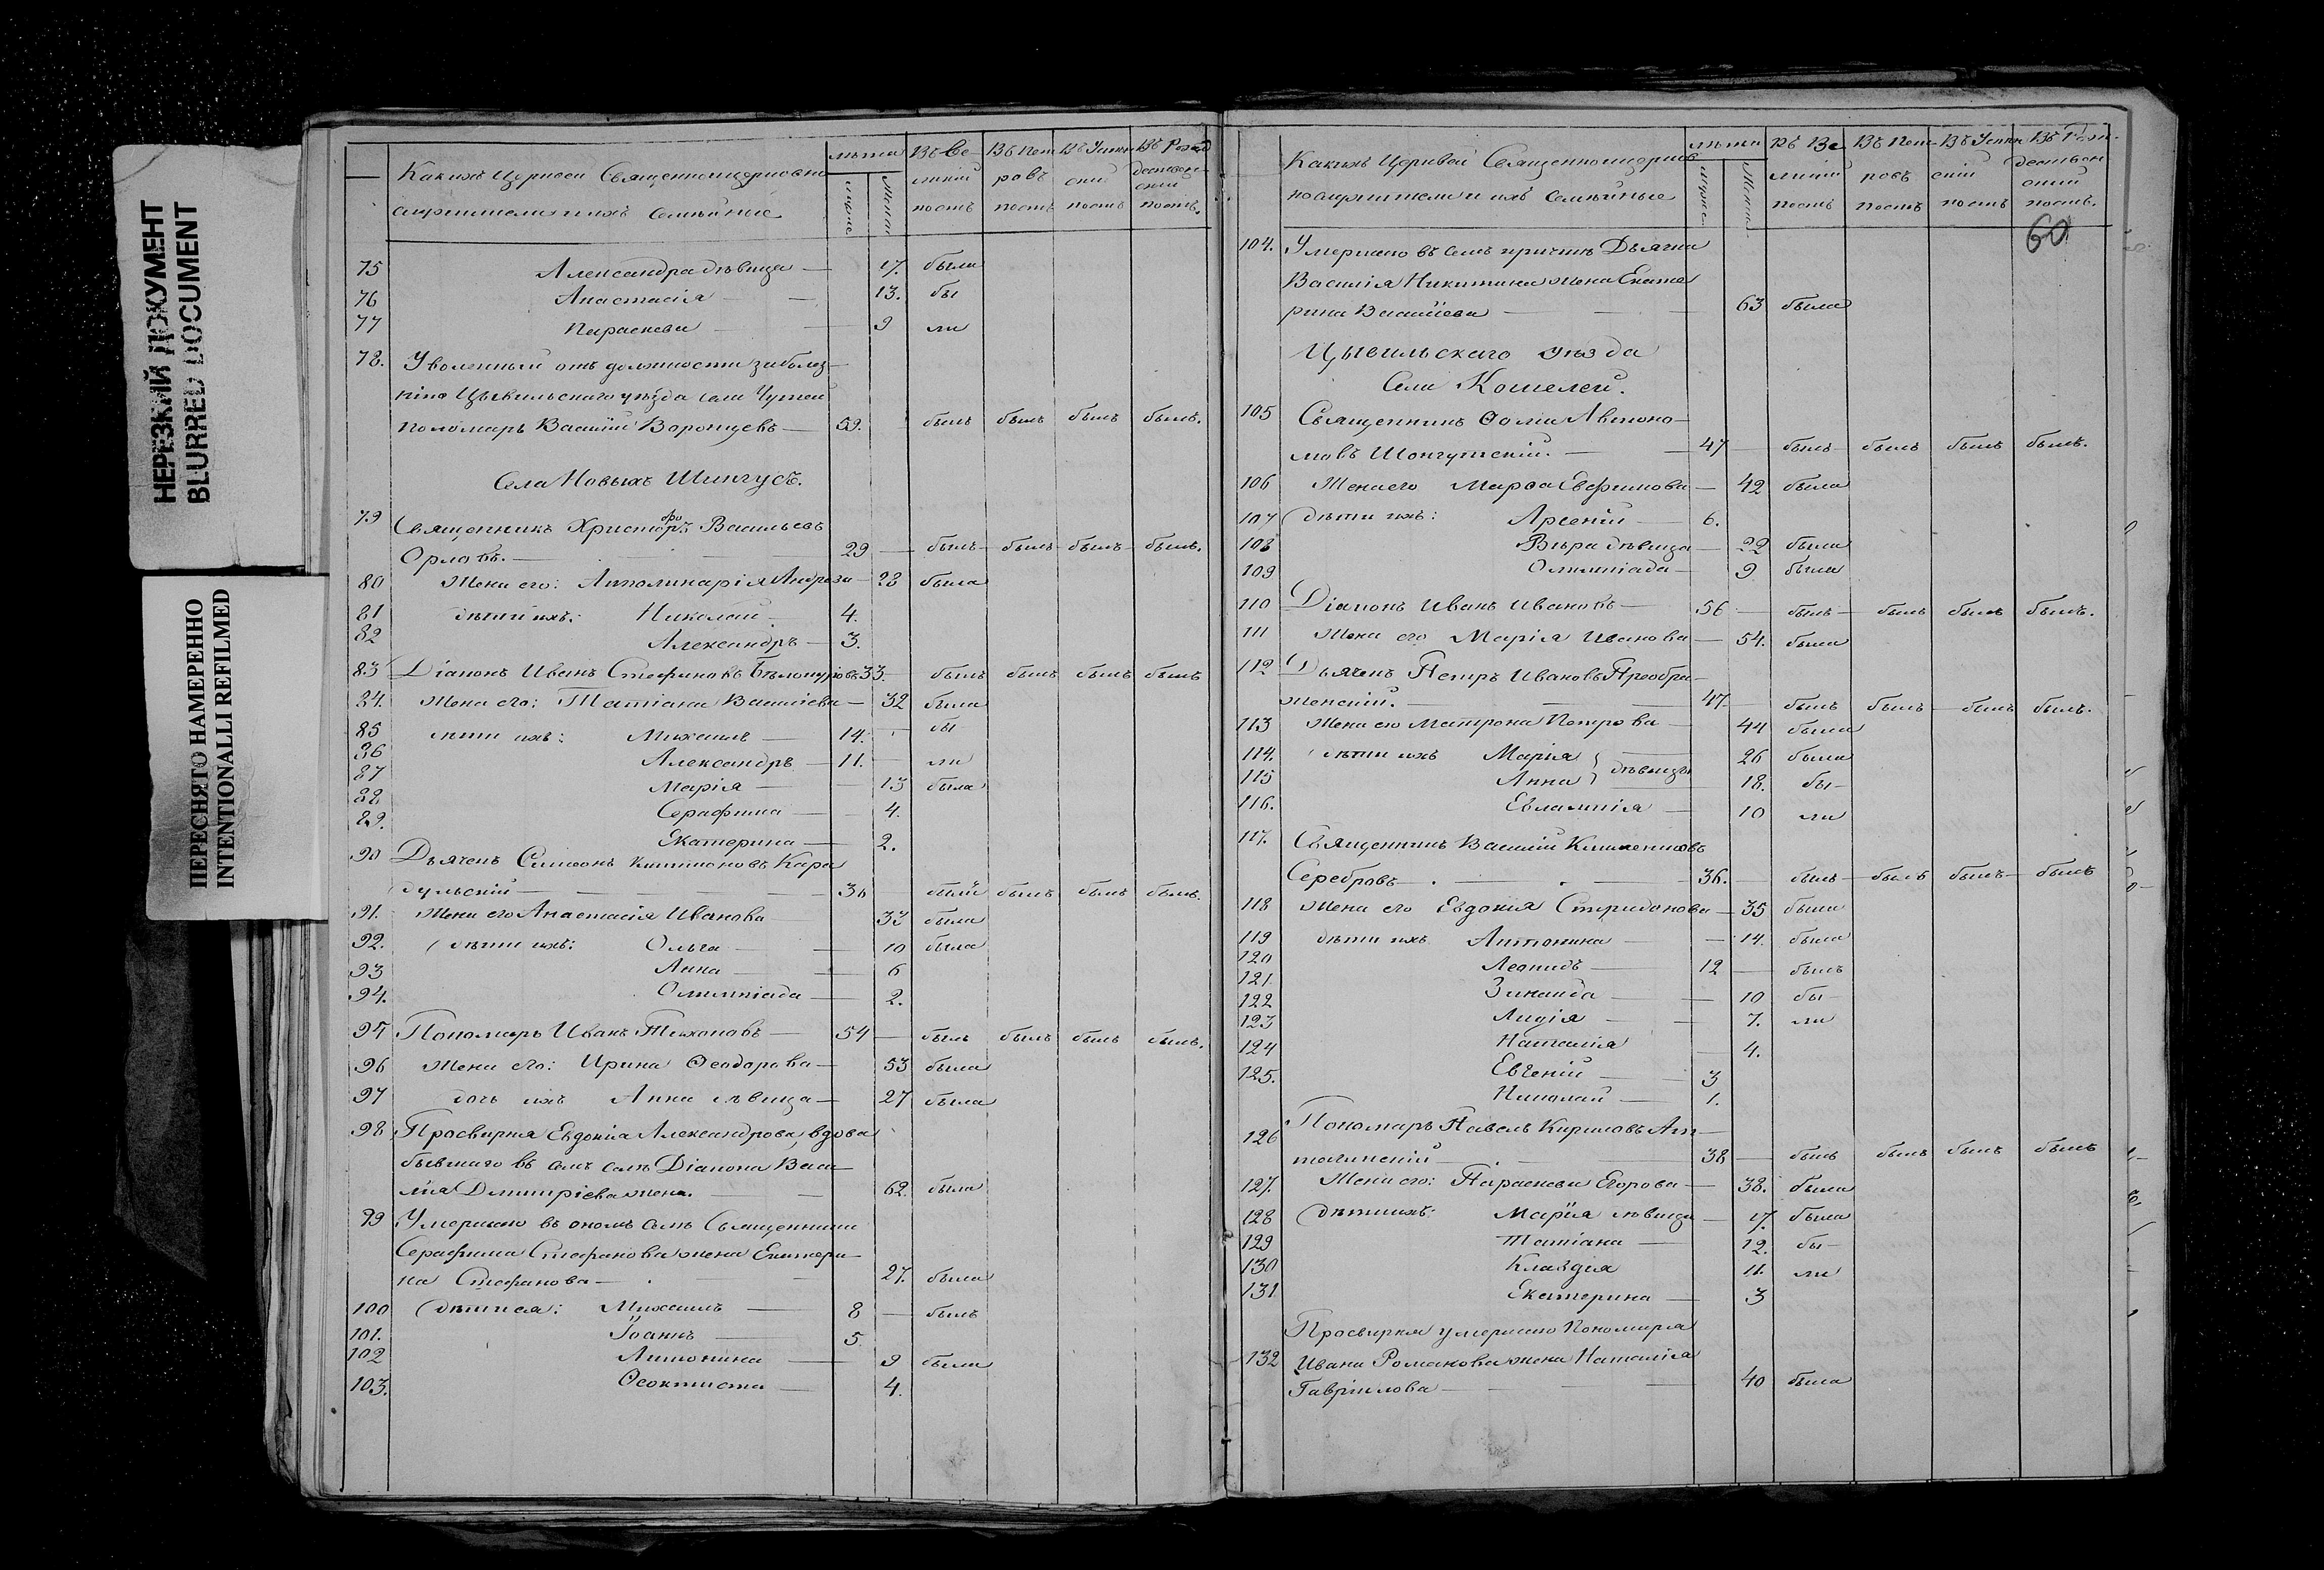 НЕРЕЗКИЙ ДОКУМЕНТ
BLURRED DOCUMENT
ПЕРЕСНЯТО НАМЕРЕННО
INTENTIONALLI REFILMED
Какихъ Церквей Священноцерковно
служители и ихъ Семѣйные
лѣта
муж.
Женс.
Въ Ве
ликій
постъ
Въ Пет
ровъ
постъ
Въ Успен
скій
постъ
Въ Рожд
дественс
скій
постъ.
75 Александра дѣвица — 17. была
76 Анастасія — 13. бы
77 Параскева — 9 ли
78. Уволенный отъ должности за болез-
нію Цывильскаго уѣзда села Чутей
пономарь Василій Воронцевъ — 59. былъ былъ былъ былъ.
Села Новыхъ Шингусъ.
79 Священникъ Христофоръ Васильевъ
Орловъ. — 29 — былъ былъ былъ былъ.
80 Жена его: Апполинарія Андреева — 28 была
81 дѣти ихъ: Николай 4.
82 Александръ — 3.
83 Діаконъ Иванъ Стефановъ Бѣлокуровъ 33. былъ былъ былъ былъ
84. Жена его: Татіана Васильева — 32 была
85 дѣти ихъ: Михаилъ — 14. бы
86 Александръ — 11. ли
87 Марія — 13 была
88 Серафима — 4.
89. Екатерина — 2.
90 Дьячекъ Симеонъ Кара
дульскій — 36 былъ былъ былъ былъ.
91. Жена его Анастасія Иванова 33 была
92. дѣти ихъ: Ольга — 10 была
93 Анна — 6
94. Олимпіада — 2.
95 Пономарь Иванъ Тихоновъ — 54 — былъ былъ былъ былъ.
96 Жена его: Ирина Ѳеодорова — 53 была
97 дочь ихъ Анна дѣвица — 27 была
98 Просвирня Евдокія Александрова, вдова
бывшаго въ семъ селѣ Діакона Васи
лія Дмитріева жена. — 62. была
99 Умершаго въ ономъ селѣ Священника
Серафима Стефанова жена Екатери
на Стефанова — 27. была
100 дѣти ея: Михаилъ — 8 — былъ
101. Іоаннъ — 5.
102 Антонина — 9 была
103. Ѳеоктиста — 4.
Какихъ Церквей Священноцерков
нослужители и ихъ Семѣйные
лѣта
мужс.
Женс.
Въ Ве
ликій
постъ
Въ Пет
ровъ
постъ
Въ Успен
скій
постъ
Въ Рож.
дествен
скій
постъ.
60
104. Умершаго въ семъ причтѣ Дьячка
Василія Никитина жена Екате
рина Васильева — 63 была
Цывильскаго уѣзда
Села Кошелей.
105 Священникъ Ѳома Автоно-
мовъ Шонгутскій. — 47 — былъ былъ былъ былъ.
106 Жена его Марѳа Евфимова — 42 была
107 дѣти ихъ: Арсеній — 6.
108 Вѣра дѣвица — 22 была
109 Олимпіада — 9 была
110 Діаконъ Иванъ Ивановъ — 56 — былъ былъ былъ былъ.
111 Жена его Марія Иванова — 54. была
112 Дьячекъ Петръ Ивановъ Преобра-
женскій. — 47. былъ былъ былъ былъ.
113 Жена его Матрона Петрова — 44 была
114. дѣти ихъ Марія } — 26 была
115 Анна } дѣвицы 18. бы-
116. Евлампія — 10 ли
117. Священникъ Василій Климентовъ
Серебровъ — 36. былъ былъ былъ былъ
118 Жена его Евдокія Спиридонова — 35 была
119 дѣти ихъ Антонина — 14. была
120 Леонидъ — 12 — былъ
121. Зинаида — 10 бы-
122 Лидія — 7. ли
123 Наталія — 4.
124 Евгеній — 3
125. Николай — 1.
126 Пономарь Павелъ Кириловъ
38 — былъ былъ былъ былъ
127. Жена его: Параскева Егорова — 38. была
128 дѣти ихъ: Марія дѣвица — 17. была
129 Татіана — 12. бы-
130 Клавдія 11. ли
131 Екатерина — 3
Просвирня умершаго Пономаря
132 Ивана Романова жена Наталія
Гавріилова — 40 была